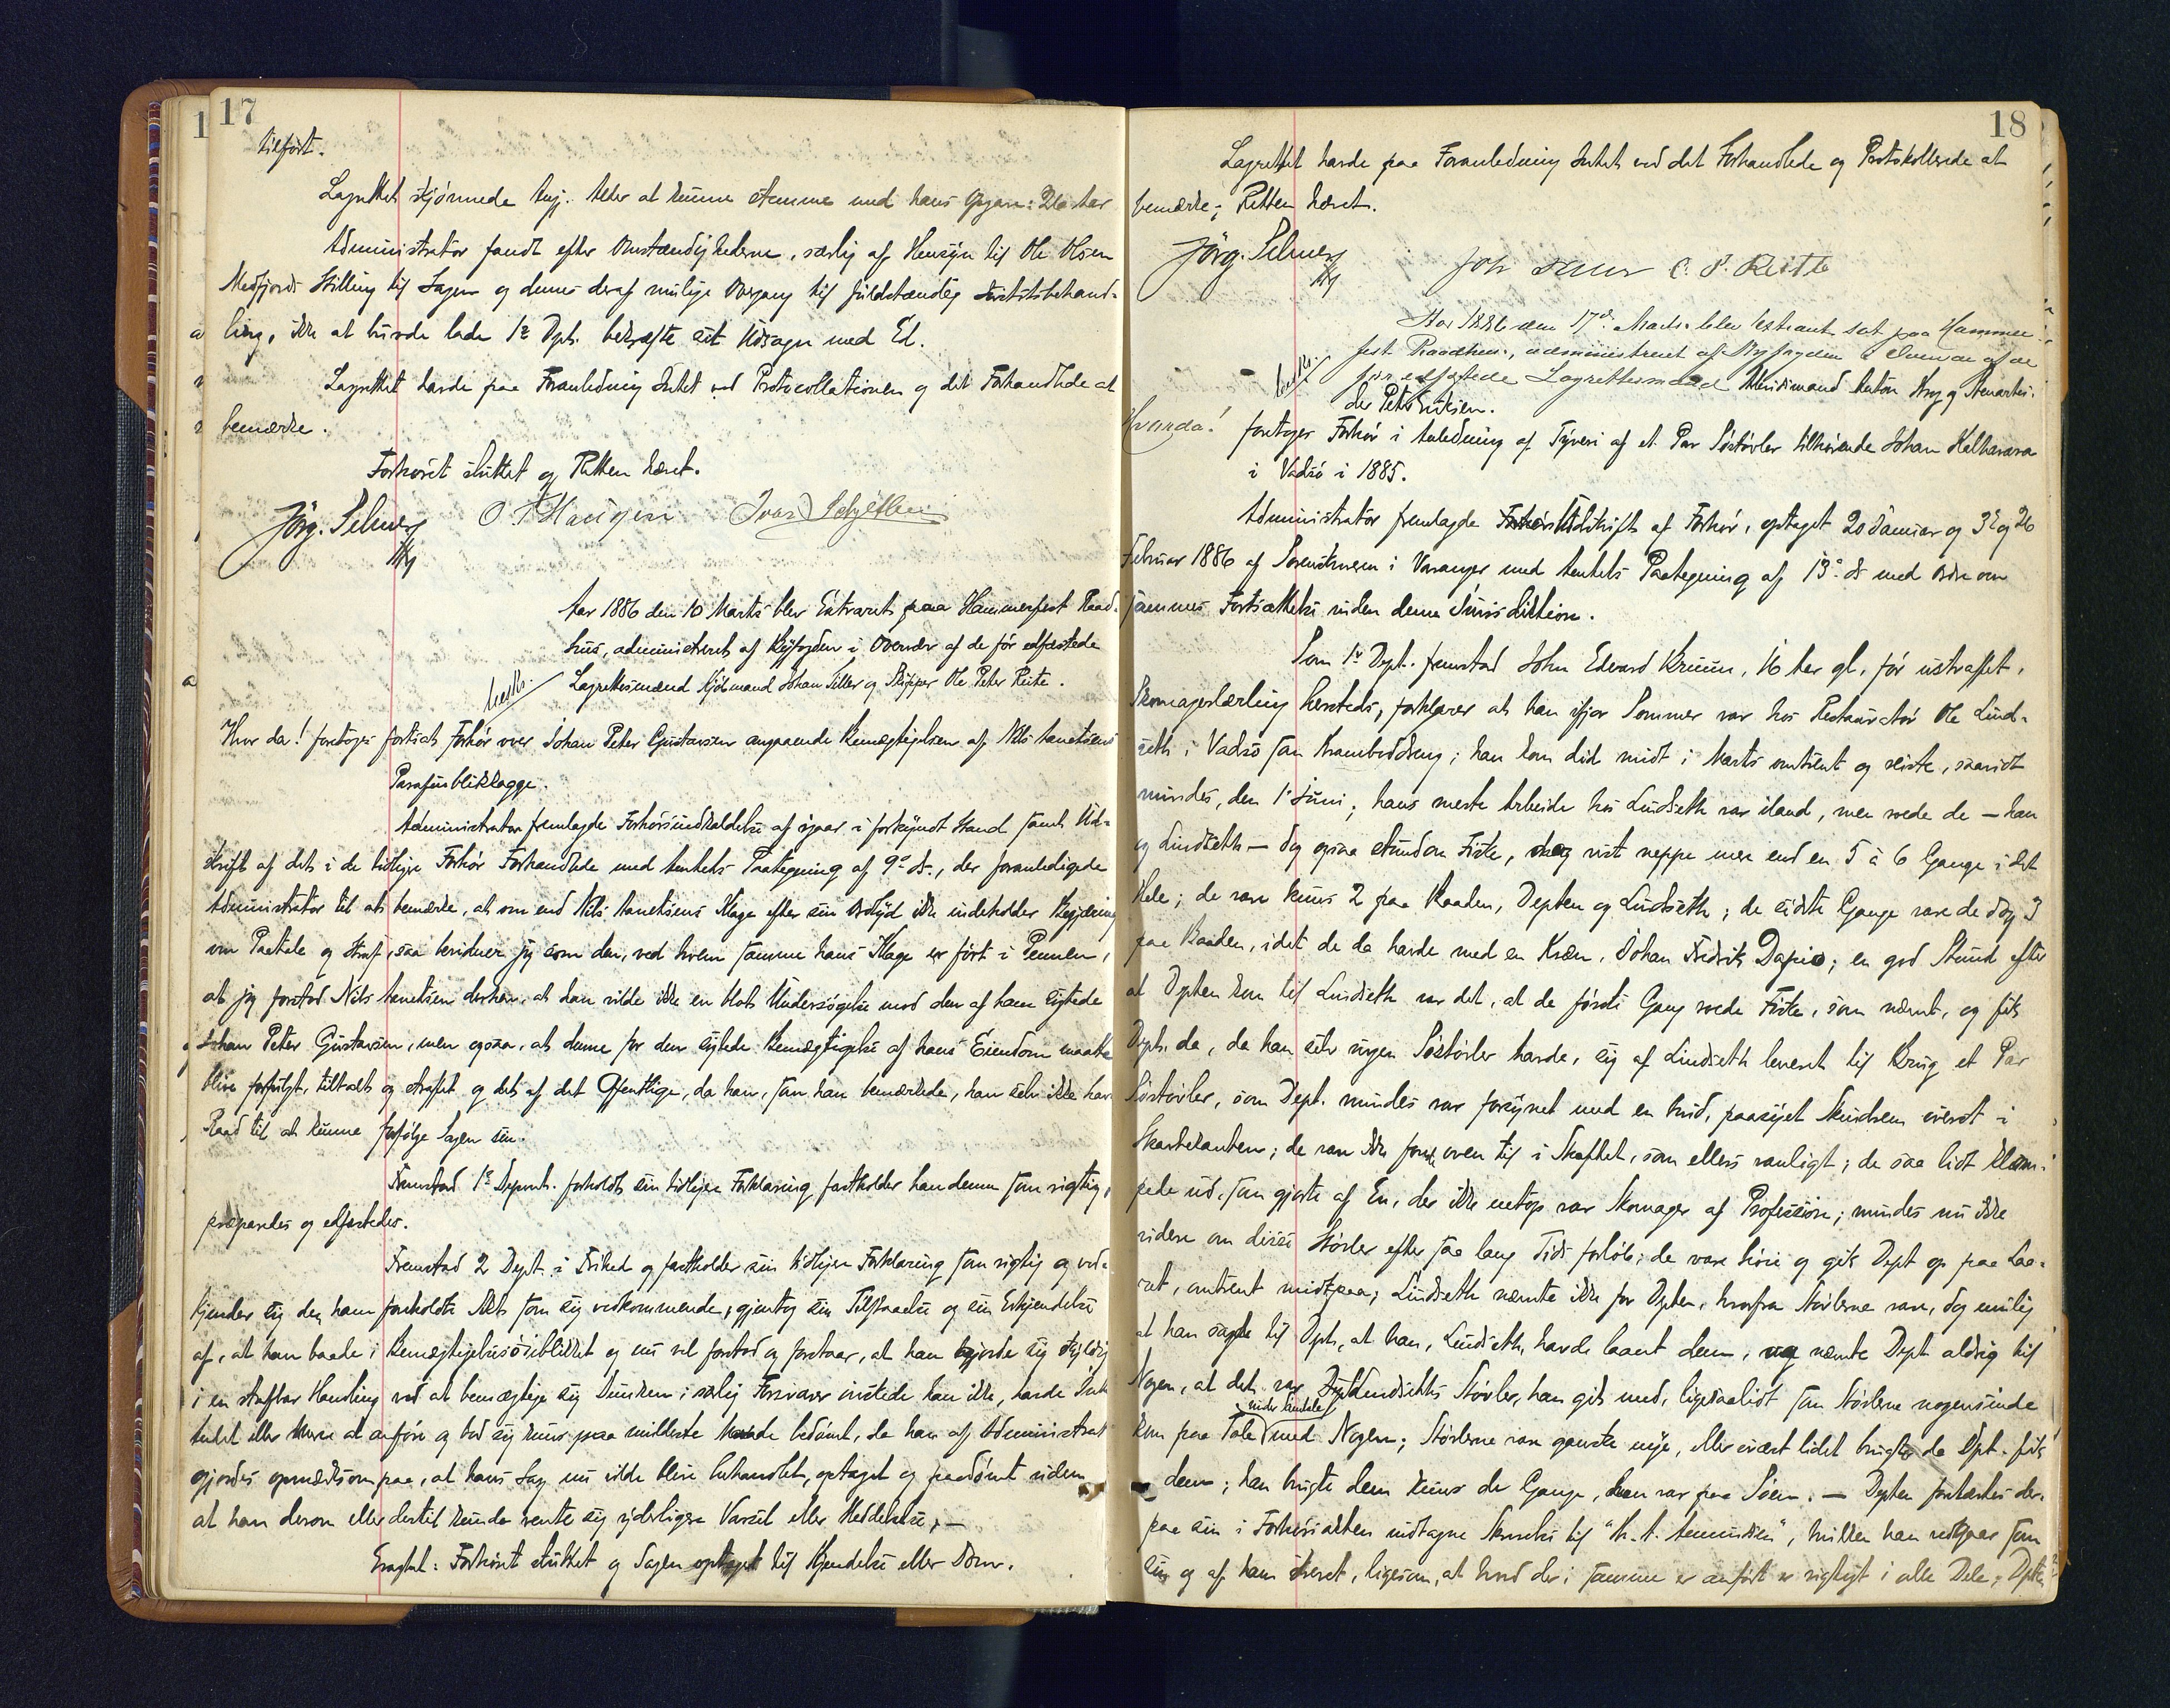 17
tilført.
Lagrettet skjønnede Ang. Alder at kunne stemme med hans Opgave: 26 Aar
Administrator fandt efter Omstændighederne, særlig af Hensyn til Ole Olsen
Medfjords Stilling til Sagen og dennes deraf mulige Overgang til fuldstændig Justitsbehand-
ling, ikke at burde lade 1ste Dpt. bekræfte sit Udsagn med Ed.
Lagrettet havde paa Foranledning Intet ved Protocollationen og det Forhandlede at
bemærke.
Forhøret sluttet og Retten hævet.
Jørg. Selmer O. T. Haugen Ivar Schjelbred
Aar 1886 den 10 Marts blev Extraret paa Hammerfest Raad-
huus, administreret af Byfogden i Overvær af de før edfæstede
Lagrettesmænd Kjøbmand Johan Siller og Skipper Ole Peter Reite.
Hvor da! foretoges fortsat Forhør over Johan Peter Gustavsen angaaende Bemægtigelsen af Nils Anetsens
Parafinblikklagge.
Administrator fremlagde Forhørsindkaldelse af igaar i forkyndt Stand samt Ud-
skrift af det i de tidligere Forhør Forhandlede med Amtets Paategning af 9de ds., der foranledigede
Administrator til at bemærke, at om end Nils Anetsens Klage efter sin Ordlyd ikke indeholder Begjæring
om Paatale og Straf, saa bevidner jeg som den, ved hvem samme hans Klage er ført i Pennen,
at jeg forstod Nils Anetsen derhen, at han vilde ikke en blot Undersøgelse mod den af ham sigtede
Johan Peter Gustavsen, men ogsaa, at denne for den sigtede Bemægtigelse af hans Eiendom maatte
blive forfulgt, tiltalt og straffet og det af det Offentlige, da han, som han bemærkede, han selv ikke har
Raad til at kunne forfølge Sagen sin.
Fremstod 1ste Deponent. forholdt sin tidligere Forklaring fastholder han denne som rigtig,
præpareredes og edfæstedes.
Fremstod 2 Dept. i Frihed og fastholder sin tidligere Forklaring som rigtig og ved-
kjender sig den ham foreholdte Akt som sig vedkommende, gjentog sin Tilstaaelse og sin Erkjendelse
af, at han baade i Bemægtigelsesøieblikket og nu vel forstod og forstaar, at han gjorde sig skyldig
i en strafbar Handling ved at bemægtige sig Dunken; nogen Forsvarer ønskede han ikke, havde Intet
Andet eller Mere at anføre og bad sig kuns paa mildeste Maade bedømt, da han af Administrator
gjordes opmærksom paa, at hans Sag nu vilde blive behandlet, optaget og paadømt uden
at han derom eller dertil kunde vente sig yderligere Varsel eller Meddelelse, —
Eragtet: Forhøret sluttet og Sagen optaget til Kjendelse eller Dom.
18
Lagrettet havde paa Foranledning Intet ved det Forhandlede og Protokollerede at
bemærke; Retten hævet.
Jørg. Selmer Joh Siller O. P. Reite
Aar 1886 den 17de Marts blev Extraret sat paa Hammer-
fest Raadhuus, administreret af Byfogden i Overvær af de
før edfæstede Lagrettesmænd Handelsmand Anton Krey og Snedker
Peter Eriksen.
Hvorda! foretoges Forhør i Anledning af Tyveri af et Par Søstøvler tilhørende Johan Kelhavara
i Vadsø i 1885.
Administrator fremlagde Udskrift af Forhør, optaget 20 Januar og 3die og 26
Februar 1886 af Sorenskriveren i Varanger med Amtets Paategning af 13de ds med Ordre om
sammes Fortsættelse inden denne Jurisdiktion.
Som 1ste Dept. fremstod John Edvard Bruun, 16 Aar gl., før ustraffet,
Skomagerlærling hersteds, forklarer at han ifjor Sommer var hos Restauratør Ole Lind-
seth i Vadsø som Krambodsdreng; han kom did midt i Marts omtrent og reiste, saavidt
mindes, den 1' Juni; hans meste Arbeide hos Lindseth var iland, men roede de — han
og Lindseth — dog ogsaa stundom Fiske, dog vist neppe mere end en 5 à 6 Gange i det
Hele; de vare kuns 2 paa Baaden, Depten og Lindseth; de sidste Gange vare de dog 3
paa Baaden, idet de da havde med en Kvæn, Johan Fredrik Dapio; en god Stund efter
at Depten kom til Lindseth var det, at de første Gang roede Fiske, som nævnt, og fik
Dept. da, da han selv ingen Søstøvler havde, sig af Lindseth leveret til Brug et Par
Søstøvler, som Dept. mindes var forsynet med en hvid, paasyet Skindrem øverst i
Skaftekanten; de var ikke foret oven til i Skaftet, som ellers vanligt; de saa lidt klum-
pede ud, som gjorte af En, der ikke netop var Skomager af Profession; mindes nu ikke
videre om disse Støvler efter saa lang Tids Forløb; de vare høie og gik Dept op paa Laa-
ret, omtrent midtpaa; Lindseth nævnte ikke for Depten, hvorfra Støvlerne vare, dog mulig
at han sagde til Dpt, at han, Lindseth, havde laant dem, og nævnte Dept aldrig til
Nogen, at det var Lindseths Støvler, han gik med, ligesaalidt som Støvlerne nogensinde
kom paa Tale under Samtale med Nogen; Støvlerne vare ganske nye, eller iværste lidet brugte, da Dpt. fik
dem; han brugte dem kuns de Gange, han var paa Søen. — Depten forelæstes der-
paa sin i Forhørsakten indtagne Skrivelse til "K. A. Amundsen", hvilken han vedgaar som
sin og af ham skrevet, ligesom, at hvad der i samme er anført er rigtigt i alle Dele; Depten